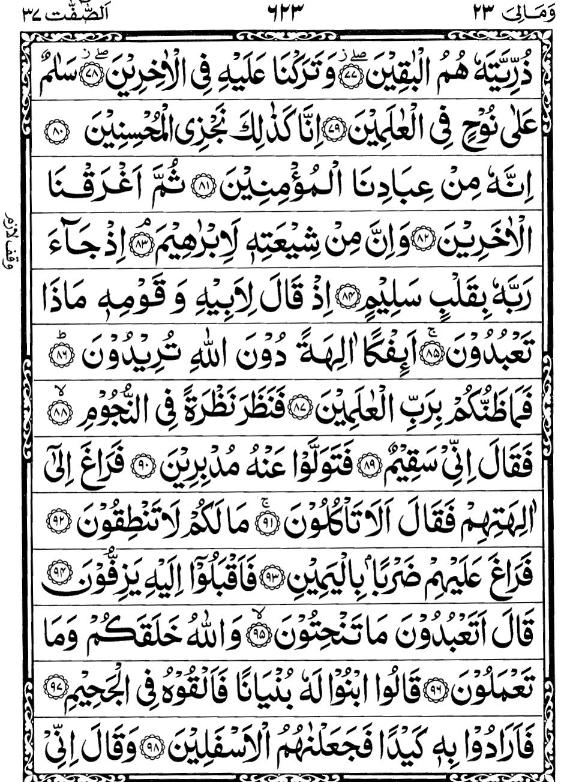 وَمَالِیَ ٢٣ ٦٢٣ اَلصّٰٓفّٰت ٣٧
ذُرِّيَّتَهٗ هُمُ الْبٰقِيْنَ ﴿٧٧﴾ وَتَرَكْنَا عَلَيْهِ فِى الْاٰخِرِيْنَ ﴿٧٨﴾ سَلٰمٌ
عَلٰى نُوْحٍ فِى الْعٰلَمِيْنَ ﴿٧٩﴾ اِنَّا كَذٰلِكَ نَجْزِى الْمُحْسِنِيْنَ ﴿٨٠﴾
اِنَّهٗ مِنْ عِبَادِنَا الْمُؤْمِنِيْنَ ﴿٨١﴾ ثُمَّ اَغْرَقْنَا
الْاٰخَرِيْنَ ﴿٨٢﴾ وَاِنَّ مِنْ شِيْعَتِهٖ لَاِبْرٰهِيْمَ ﴿٨٣﴾ اِذْ جَآءَ
رَبَّهٗ بِقَلْبٍ سَلِيْمٍ ﴿٨٤﴾ اِذْ قَالَ لِاَبِيْهِ وَ قَوْمِهٖ مَاذَا
تَعْبُدُوْنَ ﴿٨٥﴾ اَئِفْكًا اٰلِهَةً دُوْنَ اللّٰهِ تُرِيْدُوْنَ ﴿٨٦﴾
فَمَا ظَنُّكُمْ بِرَبِّ الْعٰلَمِيْنَ ﴿٨٧﴾ فَنَظَرَ نَظْرَةً فِى النُّجُوْمِ ﴿٨٨﴾
فَقَالَ اِنِّىْ سَقِيْمٌ ﴿٨٩﴾ فَتَوَلَّوْا عَنْهُ مُدْبِرِيْنَ ﴿٩٠﴾ فَرَاغَ اِلٰٓى
اٰلِهَتِهِمْ فَقَالَ اَلَا تَاْكُلُوْنَ ﴿٩١﴾ مَا لَكُمْ لَا تَنْطِقُوْنَ ﴿٩٢﴾
فَرَاغَ عَلَيْهِمْ ضَرْبًاۢ بِالْيَمِيْنِ ﴿٩٣﴾ فَاَقْبَلُوْٓا اِلَيْهِ يَزِفُّوْنَ ﴿٩٤﴾
قَالَ اَتَعْبُدُوْنَ مَا تَنْحِتُوْنَ ﴿٩٥﴾ وَاللّٰهُ خَلَقَكُمْ وَمَا
تَعْمَلُوْنَ ﴿٩٦﴾ قَالُوا ابْنُوْا لَهٗ بُنْيَانًا فَاَلْقُوْهُ فِى الْجَحِيْمِ ﴿٩٧﴾
فَاَرَادُوْا بِهٖ كَيْدًا فَجَعَلْنٰهُمُ الْاَسْفَلِيْنَ ﴿٩٨﴾ وَقَالَ اِنِّىْ
وقف لازم